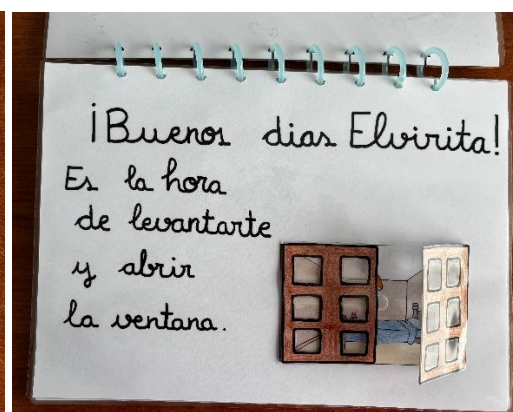 ¡Buenos dias Elvirita!
Es la hora
de levantarte
y abrir
la ventana.